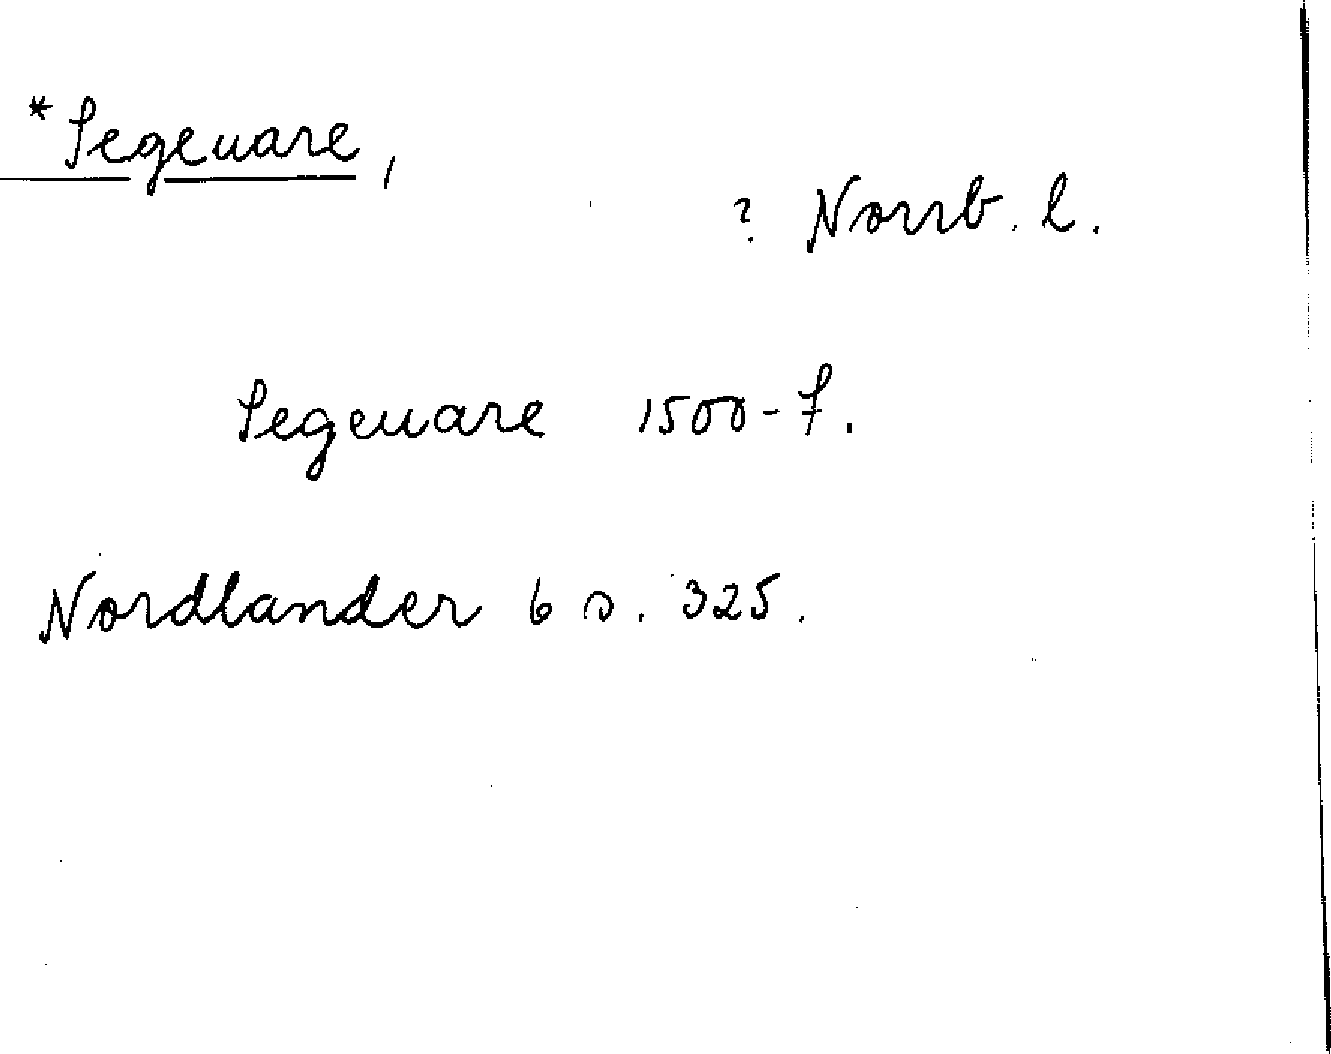 *Segeuare,
? Norrb. l.
Segeuare 1500-t.
Nordlander 6 s. 325.